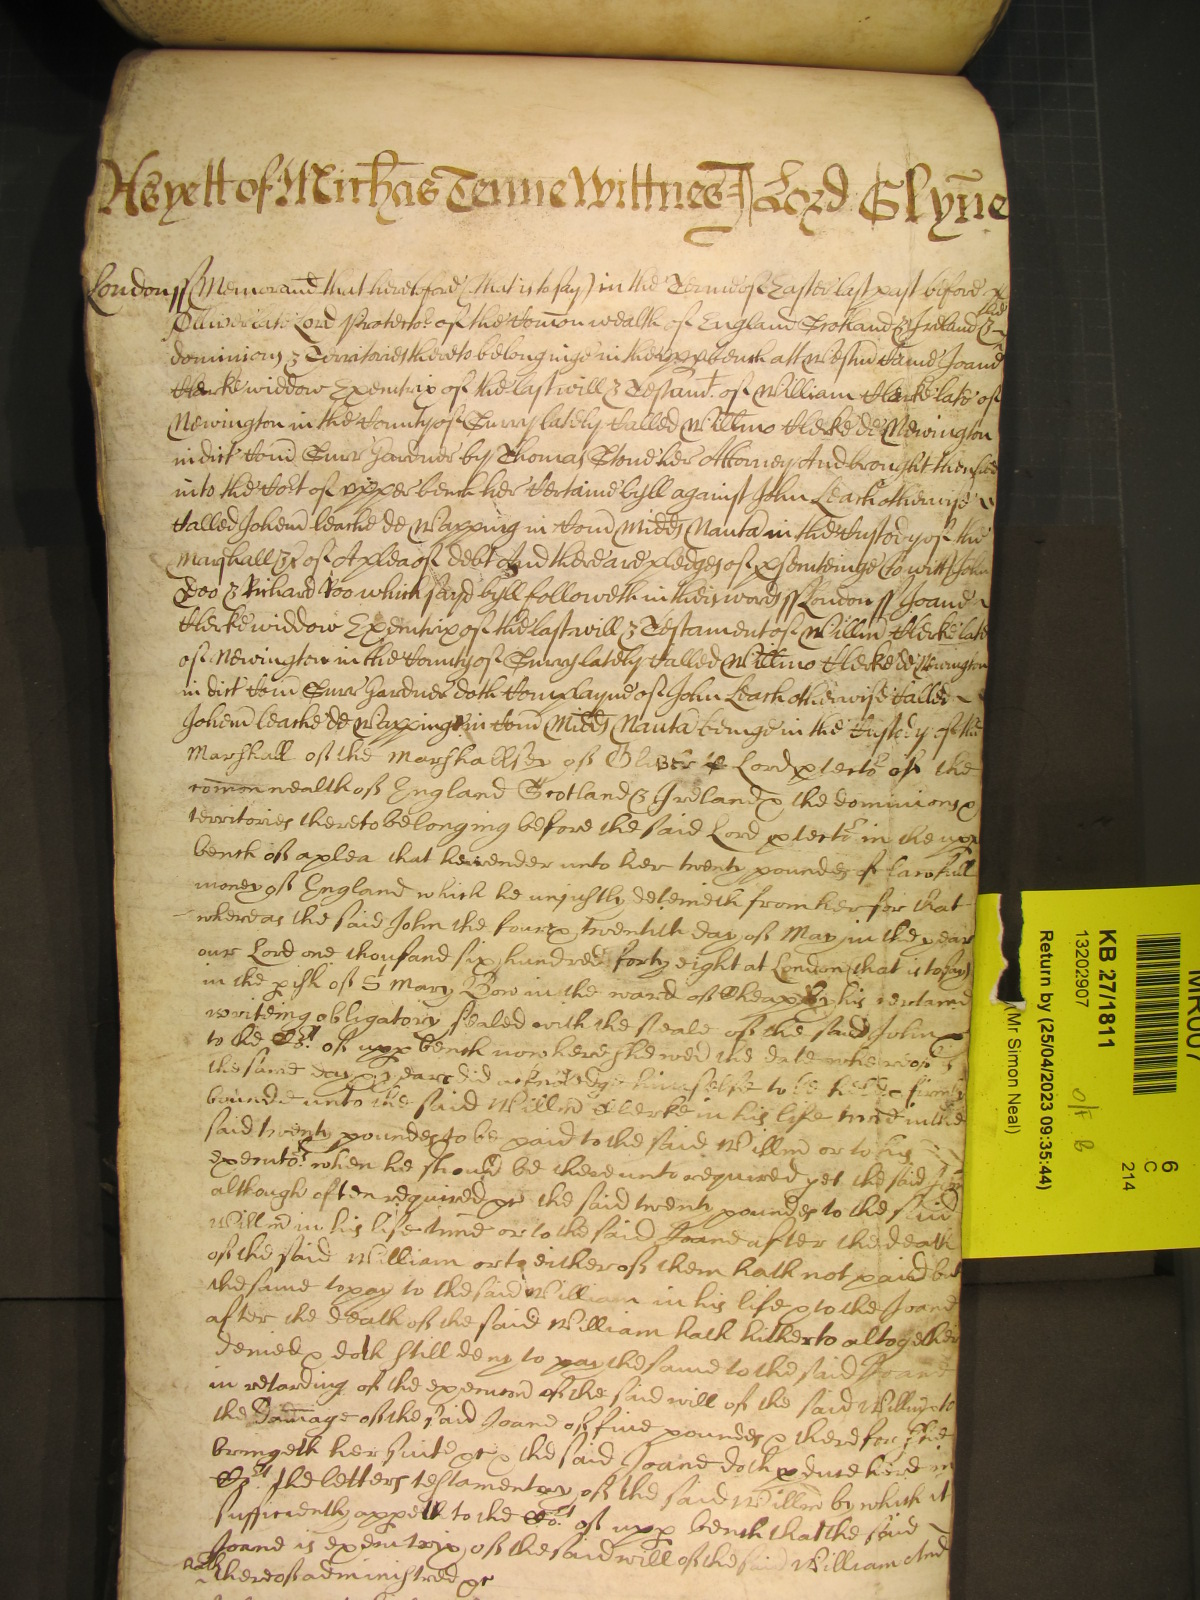 As yett of Mich'as Terme Wittnes Lord Glynne
London ss Memorand' that heretofore (that is to say) in the Terme of Easter last past before
Olliver late Lord Protector of the Comon wealth of England Scotland & Ireland & the
dominions & Territories thereto belonginge in the upp bench att Westm' Came Joane
Clerke widdow Executrix of the last will & Testam't of William Clerke late of
Newington in the County of Surry lately Called Will'mo Clerke de Newington
in dict' Com' Surr' Gardner by Thomas Stone her Attorney And brought then
into the Co't of upper bench her Certaine byll against John Leach otherwise
Called Johem' leache de Wapping in Com' Midds Nauta' in the Custody of the
Marshall &c of A plea of debt And there are pledges of p'secuteinge (to witt) John
Doo & Richard Roo which sayd byll followeth in theis words ss London ss Joane
Clerke widdow Executrix of the last will & Testament of Will'm Clerke late
of Newington in the County of Surry lately Called Will'mo Clerke de Newington
in dict' Com' Surr' Gardner doth Complayne of John Leach otherwise Called
Johem' leache de Wappinge in Com' Midds Nauta' beinge in the Custody of the
Marshall of the Marshallsey of Oliver Lord p'tecto'r of the
comon wealth of England Scotland & Ireland & the dominions &
territories thereto belonging before the said Lord p'tecto'r in the upp
bench of a plea that he render unto her twenty poundes of lawfull
money of England which he unjustly deteineth from her for that
whereas the said John the four & twentith day of May in the year
our Lord one thousand six hundred forty eight at London that is to say
in the p'ish of St Mary Bow in the ward of Cheap by his certaine
writeing obligatory sealed with the seale of the said John &
to the Co't of upp bench now here shewed the date whereof is
the same day & yeare did acknoledge himselfe to be held & firmly
bounde unto the said Will'm Clerke in his life time in the
said twenty poundes to be paid to the said Will'm or to his
executo'rs when he should be thereunto required yet the said John
although often required &c the said twenty poundes to the said
Will'm in his life time or to the said Joane after the death
of the said William or to either of them hath not paied but
the same to pay to the said William in his life & to the Joane
after the death of the said William hath hitherto altogether
denied & doth still deny to pay the same to the said Joane
in retarding of the execucon of the said will of the said Will'm & to
the Damage of the said Joane of five poundes & therefor shee
bringeth her suite &c & the said Joane doth p'duce here in
Co't the letters testamentary of the said Will'm by which it
sufficiently appe'th to the Co't of upp bench that the said
Joane is executrix of the said will of the said William And
hath thereof administred &c
MR007
KB 27/1811
13202907
Return by (25/04/2023 09:35:44)
(Mr Simon Neal)
6
C
214